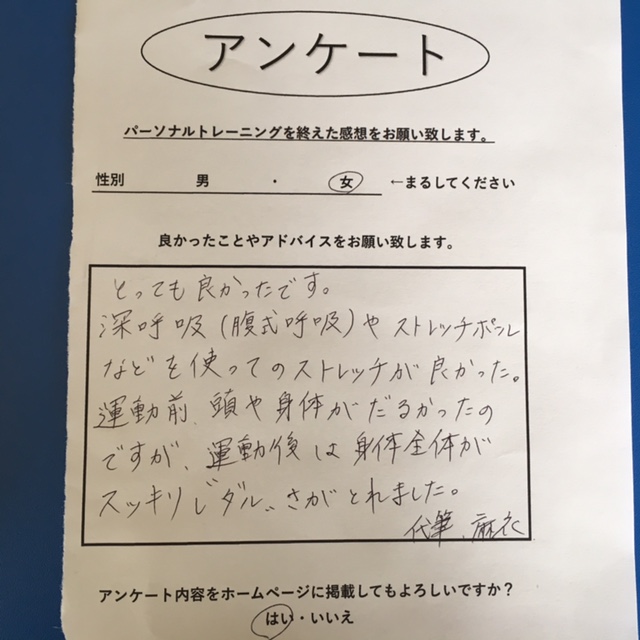 アンケート
パーソナルトレーニングを終えた感想をお願い致します。
性別 男 ・ 女 ←まるしてください
良かったことやアドバイスをお願い致します。
とっても良かったです。
深呼吸(腹式呼吸)やストレッチポール
などを使ってのストレッチが良かった。
運動前、頭や身体がだるかったの
ですが、運動後は身体全体が
スッキリしダルさがとれました。
代筆
アンケート内容をホームページに掲載してもよろしいですか?
はい・いいえ